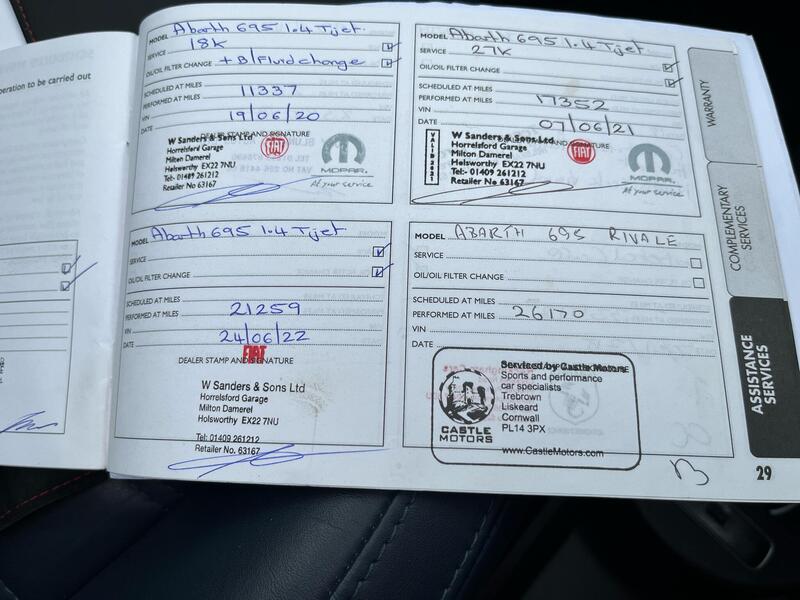 peration to be carried out
MODEL Abarth 695 1.4 Tjet.
SERVICE 18K
OIL/OIL FILTER CHANGE + B/Fluid change
SCHEDULED AT MILES
PERFORMED AT MILES 11337
VIN
DATE 19/06/20
DEALER STAMP AND SIGNATURE
W Sanders & Sons Ltd
Horrelsford Garage
Milton Damerel
Helsworthy EX22 7NU
Tel:- 01409 261212
Retailer No 63167
FIAT
MOPAR.
At your service
MODEL Abarth 695 1.4 Tjet
SERVICE 27K
OIL/OIL FILTER CHANGE
SCHEDULED AT MILES
PERFORMED AT MILES 17352
VIN
DATE 07/06/21
DEALER STAMP AND SIGNATURE
W Sanders & Sons Ltd
Horrelsford Garage
Milton Damerel
Helsworthy EX22 7NU
Tel:- 01409 261212
Retailer No 63167
FIAT
MOPAR.
At your service
MODEL Abarth 695 1.4 Tjet
SERVICE
OIL/OIL FILTER CHANGE
SCHEDULED AT MILES
PERFORMED AT MILES 21259
VIN
DATE 24/06/22
FIAT
DEALER STAMP AND SIGNATURE
W Sanders & Sons Ltd
Horrelsford Garage
Milton Damerel
Holsworthy EX22 7NU
Tel: 01409 261212
Retailer No. 63167
MODEL ABARTH 695 RIVALE
SERVICE
OIL/OIL FILTER CHANGE
SCHEDULED AT MILES
PERFORMED AT MILES 26170
VIN
DATE
Serviced by Castle Motors
Sports and performance
car specialists
Trebrown
Liskeard
Cornwall
PL14 3PX
CASTLE
MOTORS
www.CastleMotors.com
WARRANTY
COMPLEMENTARY
SERVICES
ASSISTANCE
SERVICES
29